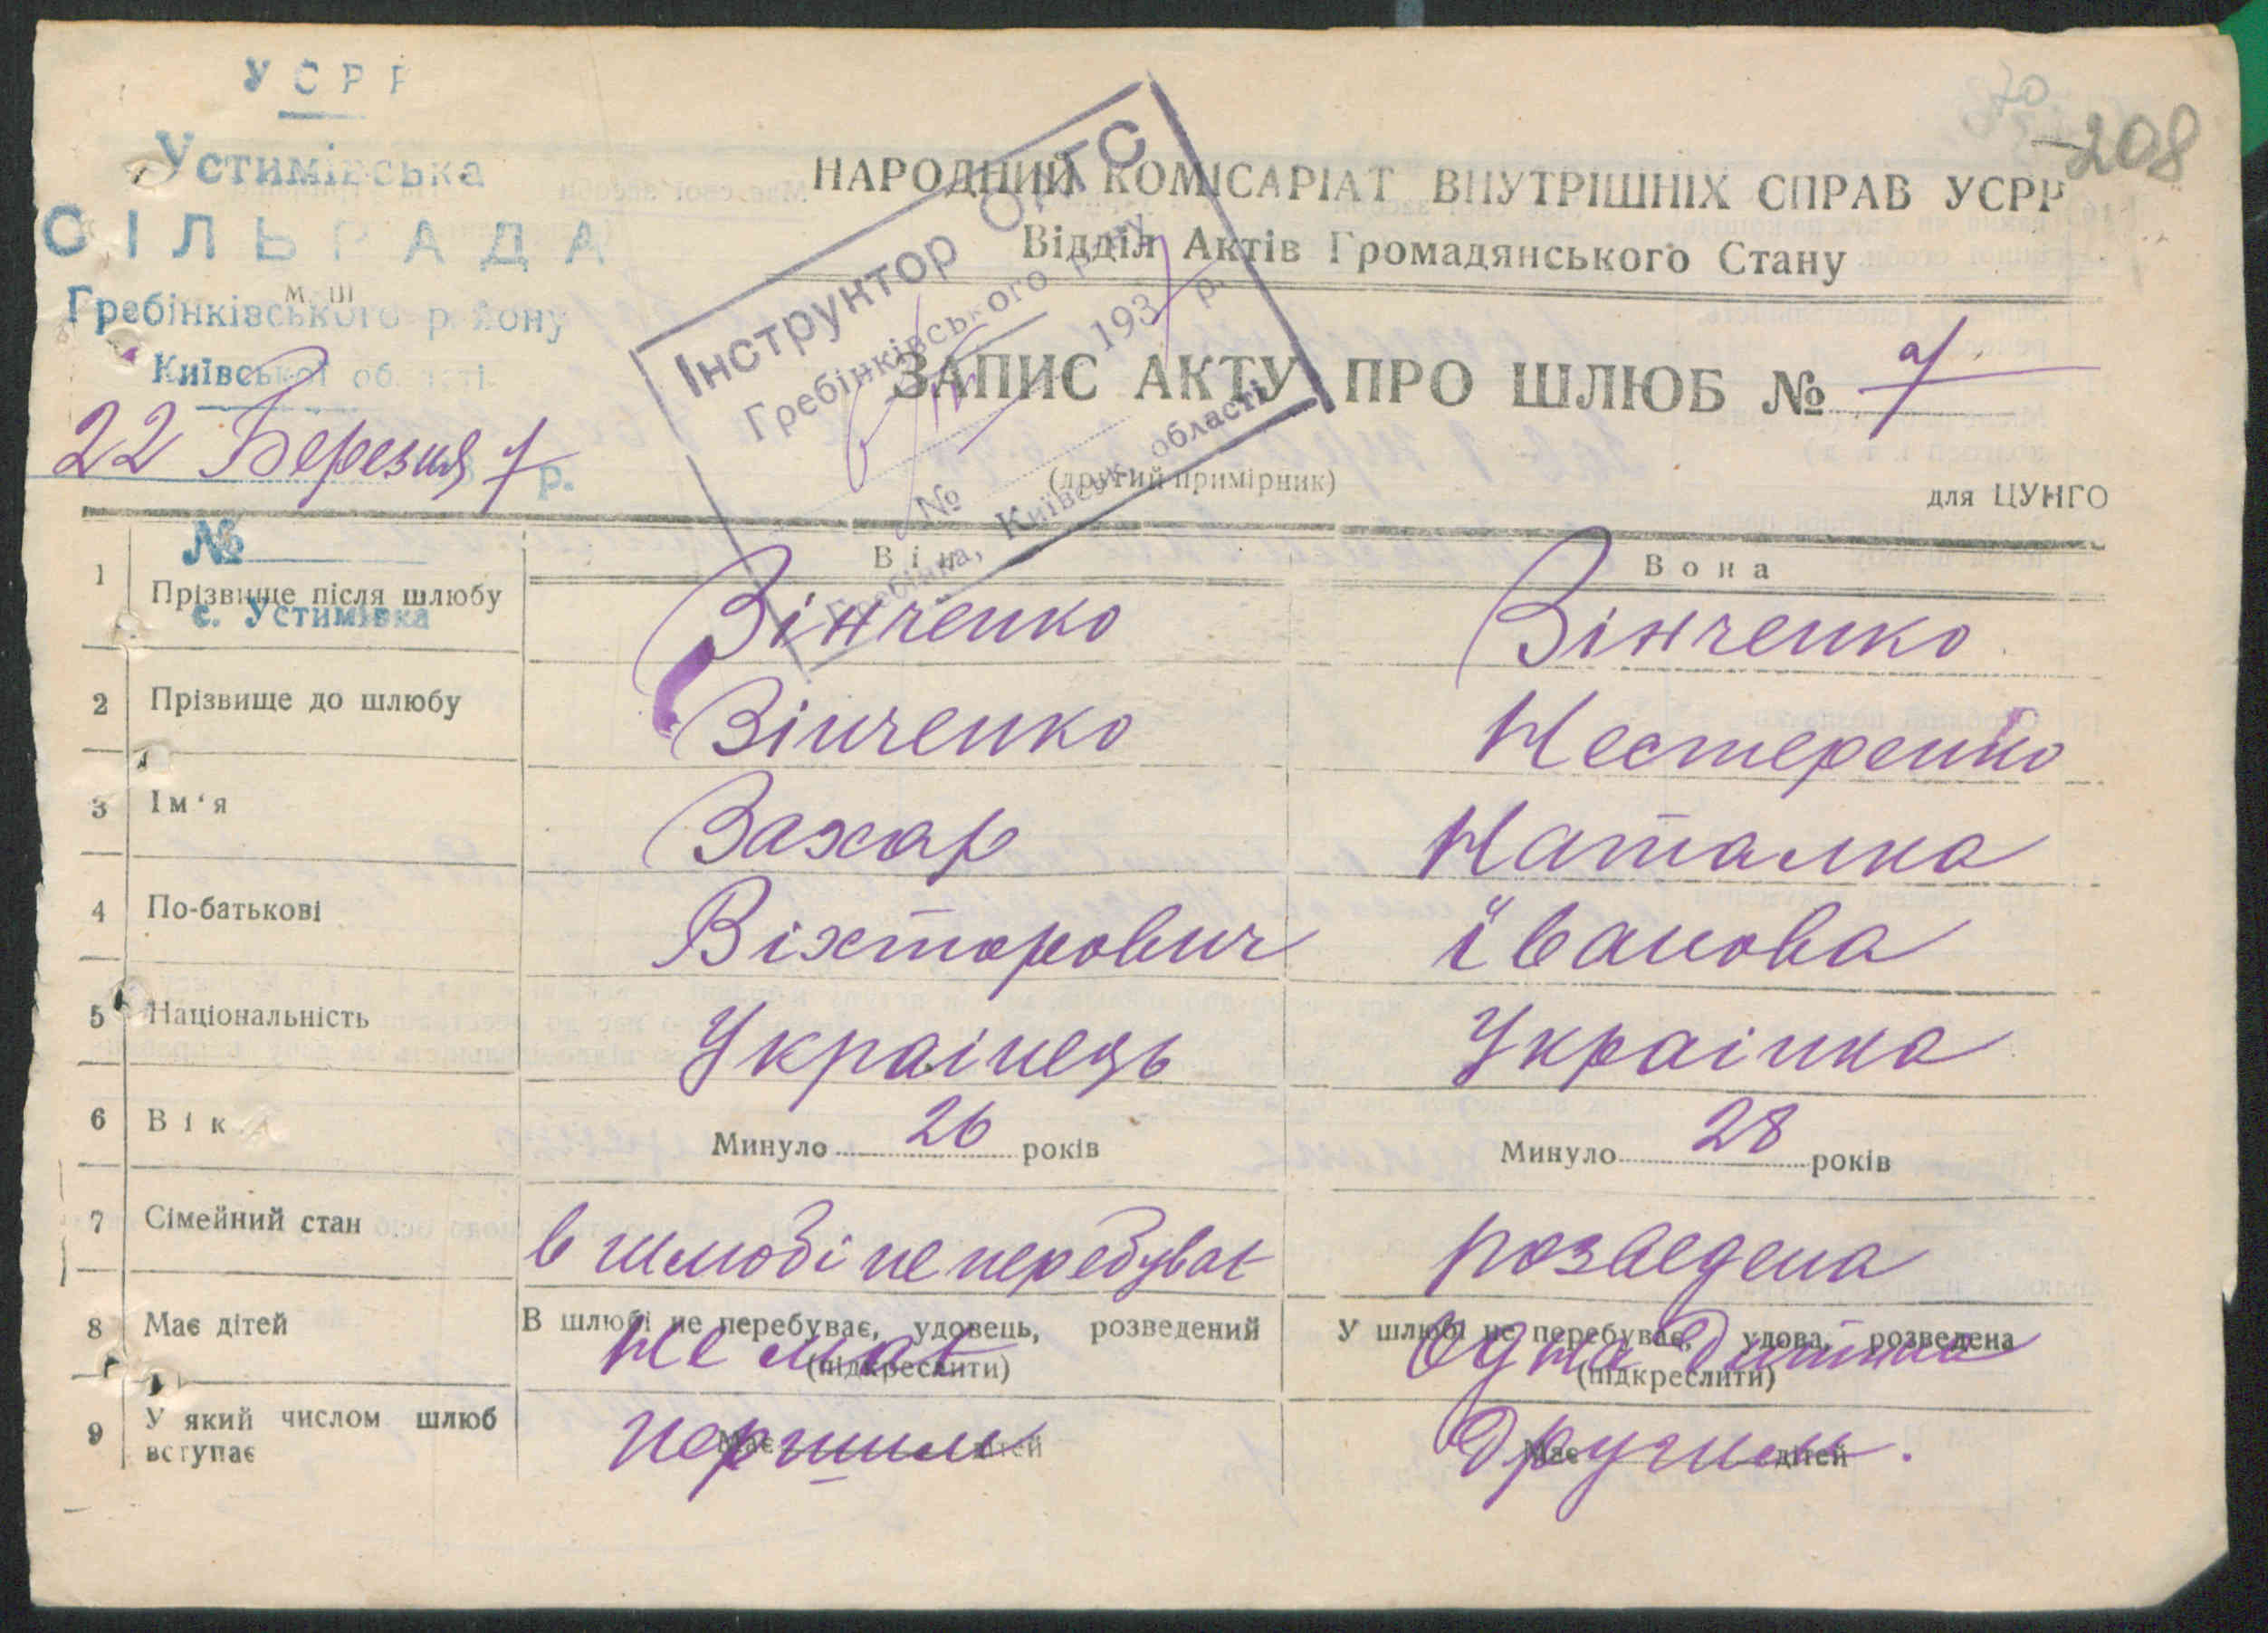 УСРР
208
Устимівська
СІЛЬРАДА
Гребінківського району
Київської області
22 Березня 7 р.
№
с. Устимівка
Інструктор ОАГС
Гребінківського р-ну
193 р.
№
Гребінка, Київськ. області
НАРОДНИЙ КОМІСАРІАТ ВНУТРІШНІХ СПРАВ УСРР
Відділ Актів Громадянського Стану
ЗАПИС АКТУ ПРО ШЛЮБ № 7
(другий примірник)
для ЦУНГО
Він Вона
1 Прізвище після шлюбу Зінченко Зінченко
2 Прізвище до шлюбу Зінченко Нестеренко
3 Ім‘я Захар Наталка
4 По-батькові Віхторович Іванова
5 Національність Украінець Украінка
6 Вік Минуло 26 років Минуло 28 років
7 Сімейний стан в шлюбі не перебуває розведена
В шлюбі не перебуває, удовець, розведений У шлюбі не перебуває, удова, розведена
(підкреслити) (підкреслити)
8 Має дітей Не має Одна Дитина
Має дітей Має дітей
9 У який числом шлюб
вступає першим Другим.